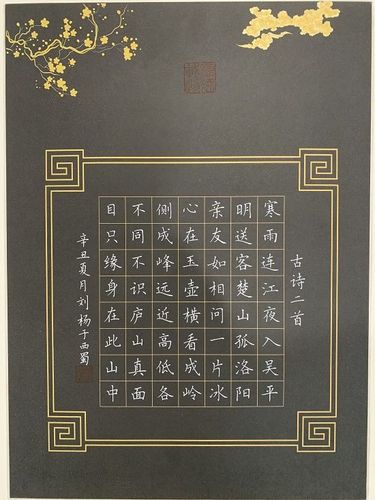 古诗二首
寒雨连江夜入吴平
明送客楚山孤洛阳
亲友如相问一片冰
心在玉壶横看成岭
侧成峰远近高低各
不同不识庐山真面
目只缘身在此山中
辛丑夏月刘杨于西蜀